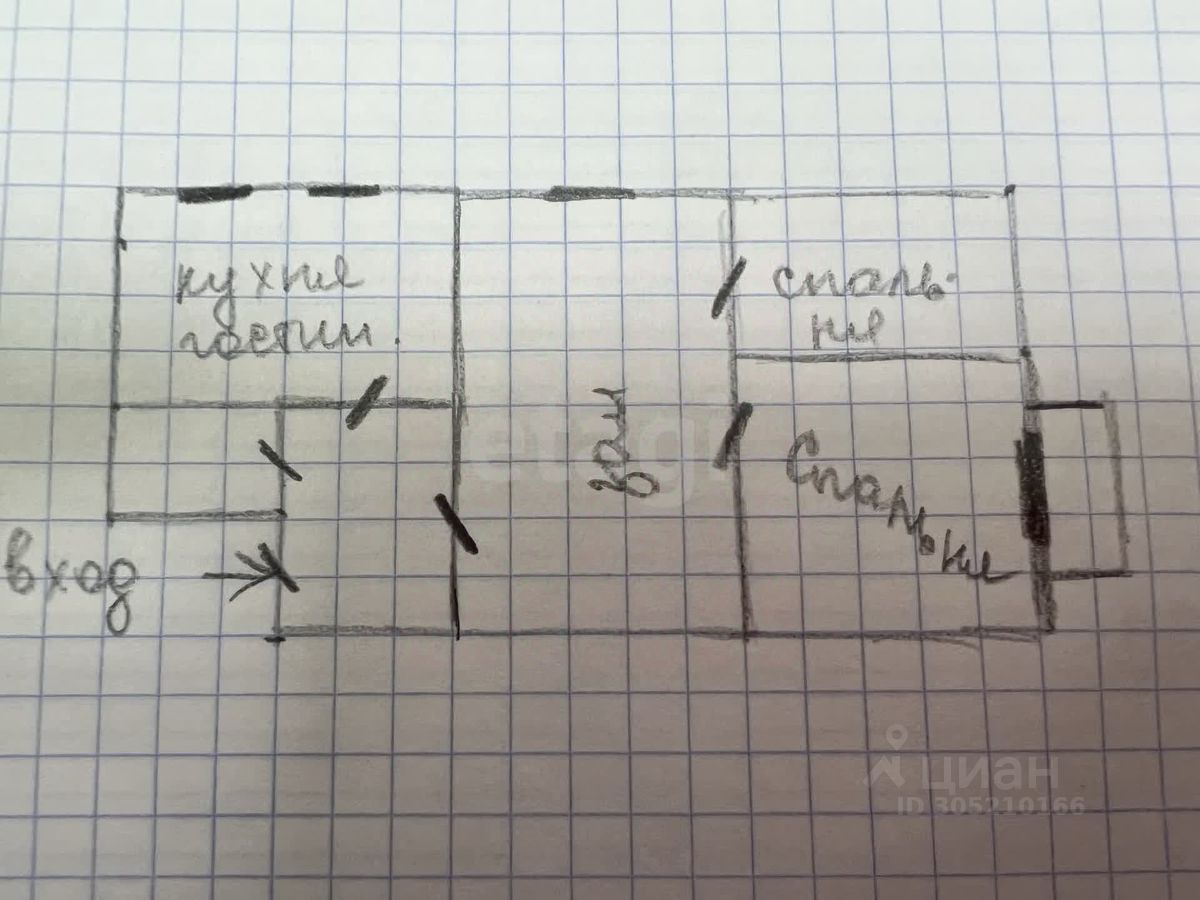 кухня
гостин.
спаль-
ня
зал
Спальня
вход
etagi
циан
ID 305210166